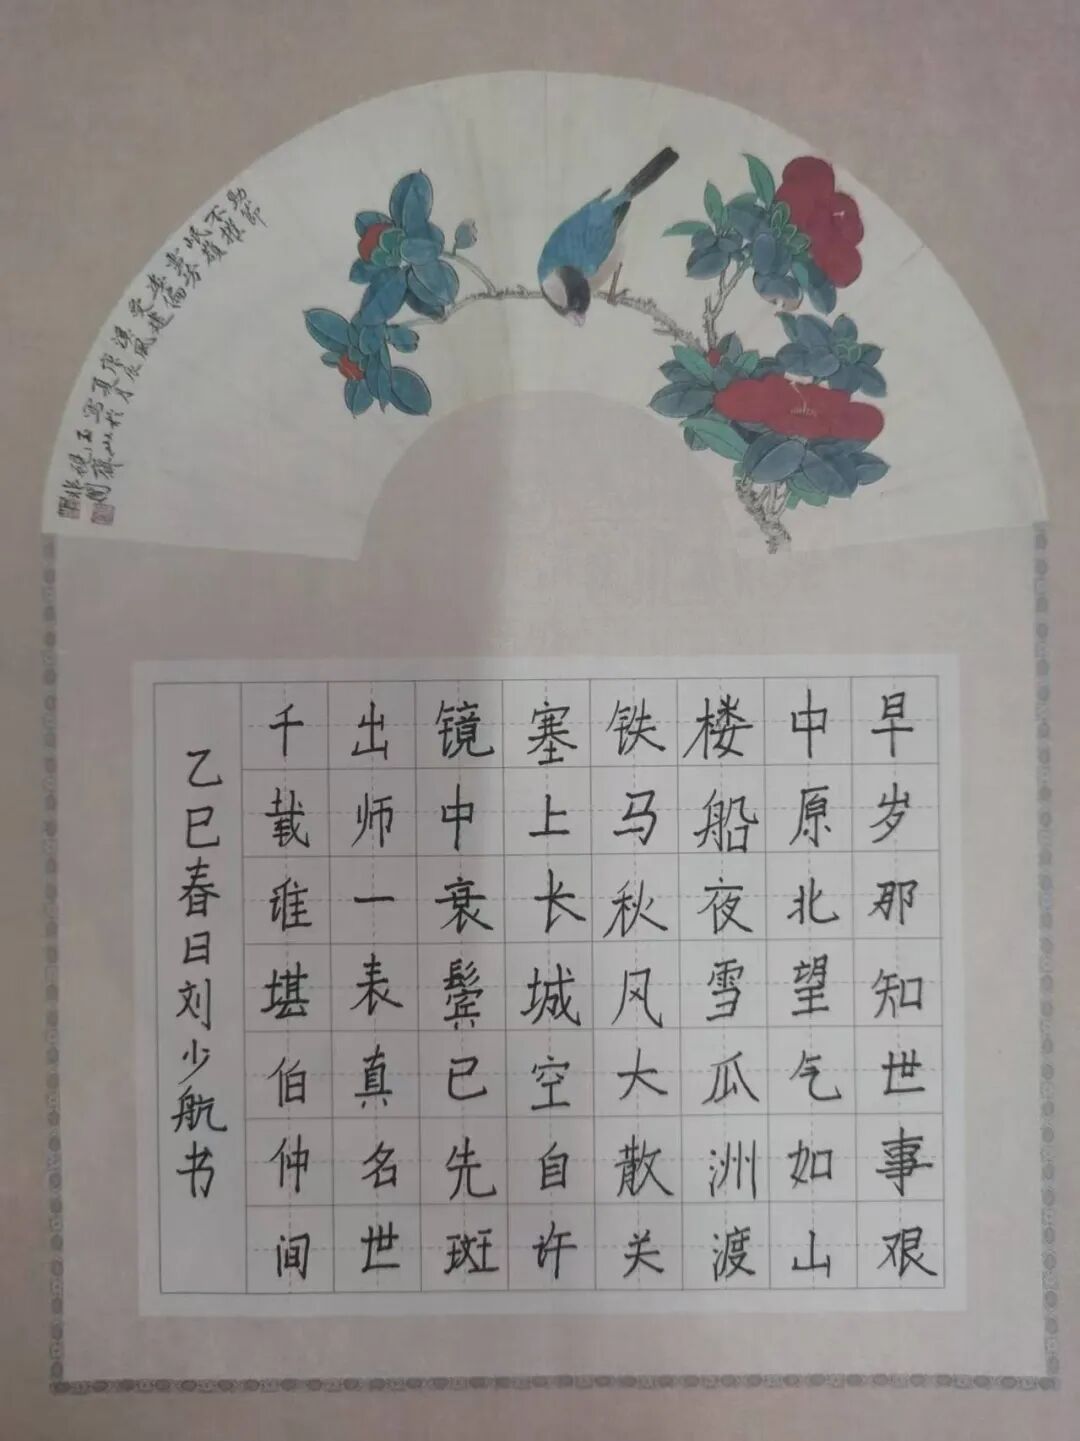 早岁那知世事艰
中原北望气如山
楼船夜雪瓜洲渡
铁马秋风大散关
塞上长城空自许
镜中衰鬓已先斑
出师一表真名世
千载谁堪伯仲间
乙巳春日刘少航书